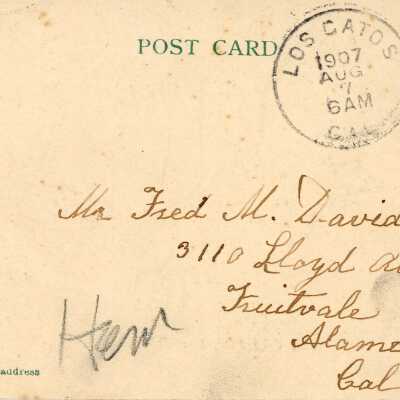 POST CARD
LOS GATOS
1907
AUG
7
6AM
CAL
Mr Fred M. David
3110 Lloyd A
Fruitvale
Alame
Cal
address